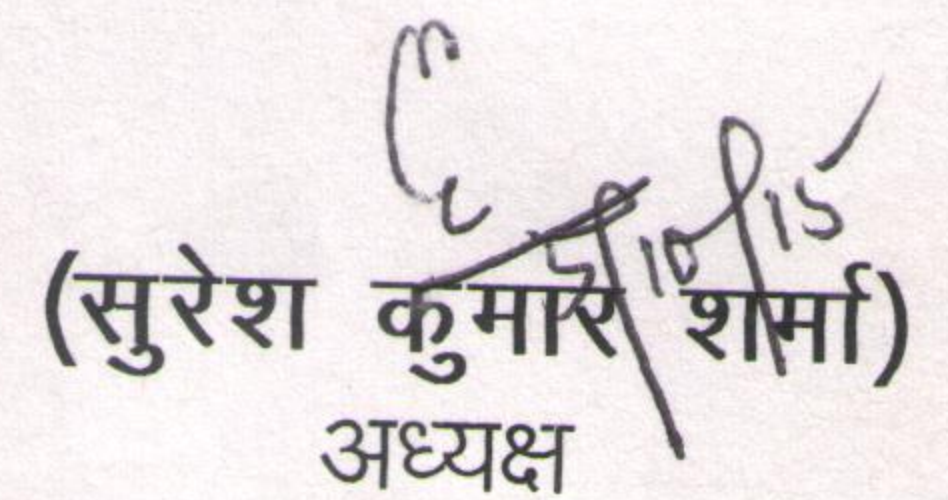 10/15
(सुरेश कुमार शर्मा)
अध्यक्ष